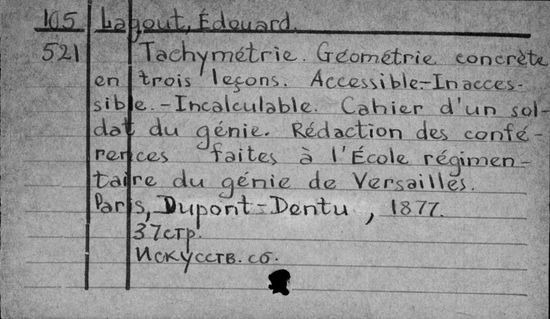 105 Lagout, Édouard.
521 Tachymétrie. Géométrie concrète
en trois leçons. Accessible-Inacces-
sible.-Incalculable. Cahier d'un sol-
dat du génie. Rédaction des confé-
rences faites à l'École régimen-
taire du génie de Versailles.
Paris, Dupont-Dentu, 1877.
37стр.
Искусств. сб.